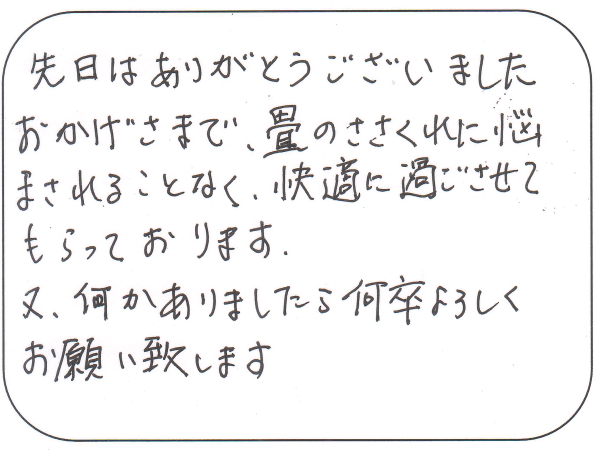 先日はありがとうございました
おかげさまで、畳のささくれに悩
まされることなく、快適に過ごさせて
もらっております.
又、何かありましたら何卒よろしく
お願い致します